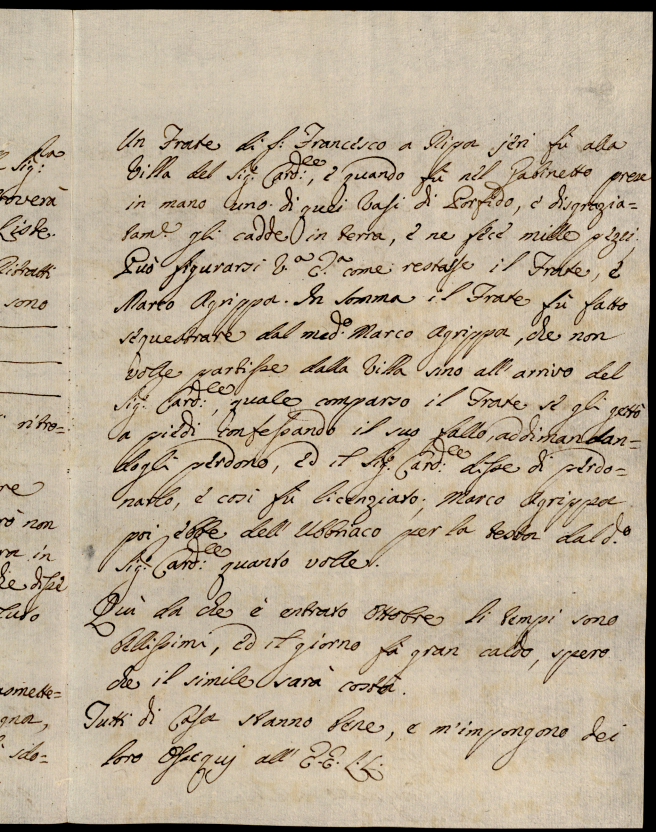 Un Frate di s: Francesco a Ripa jeri fù alla
Villa del Sig: Card:le, e quando fù nel Gabinetto prese
in mano uno di quei Vasi di Porfido, e disgrazia=
tam:e gli cadde in terra, e ne fece mille pezzi.
Può figurarsi V:a C:a come restasse il Frate, e
Marco Agrippa. In somma il Frate fù fatto
sequestrare dal med:o Marco Agrippa, che non
volle partisse dalla Villa sino all'arrivo del
Sig: Card:le, quale comparso il Frate se gli gettò
a piedi confessando il suo fallo, addimandan=
dogli perdono, ed il Sig: Card:le disse di perdo=
narlo, e così fù licenziato; Marco Agrippa
poi ebbe dell'Ubbriaco per la testa dal d:o
Sig: Card:le quanto volle.
Quà da che è entrato Ottobre li tempi sono
bellissimi, ed il giorno fà gran caldo, spero
che il simile sarà costà.
Tutti di Casa stanno bene, e m'impongono dei
loro Ossequj all' E.E. L:L:
Sig:
troverà
Liste.
Ritratti
sono
ritro=
re
non
in
che disse
=
gna,